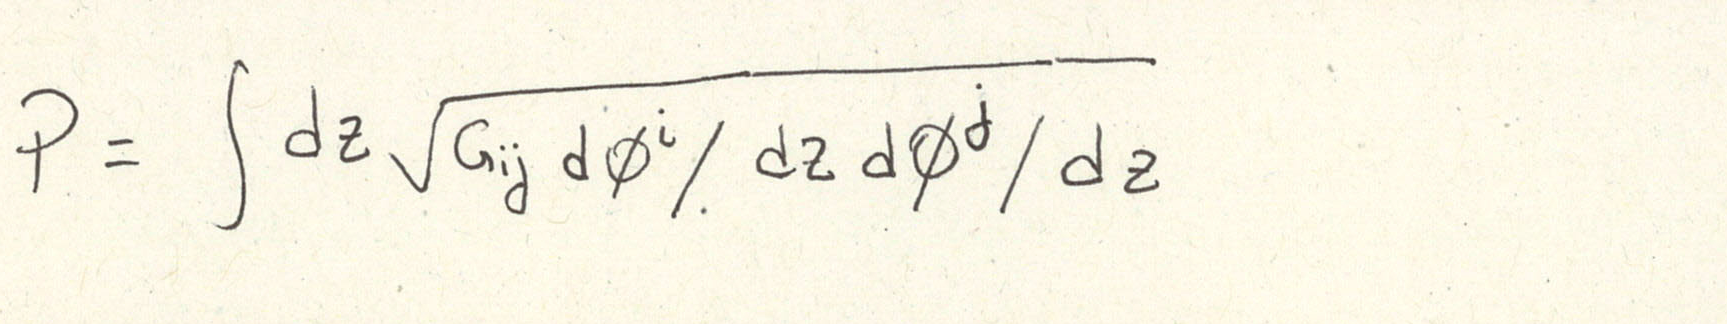 P = ∫ dz √(G_ij dφ^i / dz dφ^j / dz)